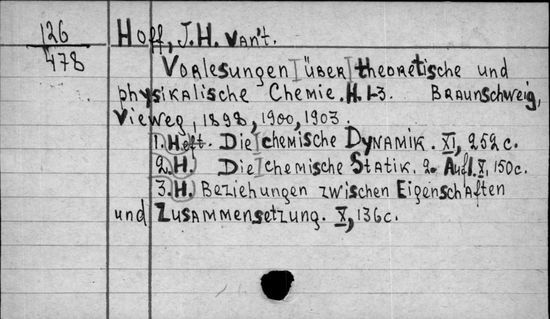 126
478
Hoff, J.H. van't.
Vorlesungen über theoretische und
physikalische Chemie. H. 1-3. Braunschweig,
Vieweg, 1898, 1900, 1903.
1. Heft. Die chemische Dynamik. XI, 252 c.
2. H. Die chemische Statik. 2. Aufl. X, 150 c.
3. H. Beziehungen zwischen Eigenschaften
und Zusammensetzung. X, 136 c.